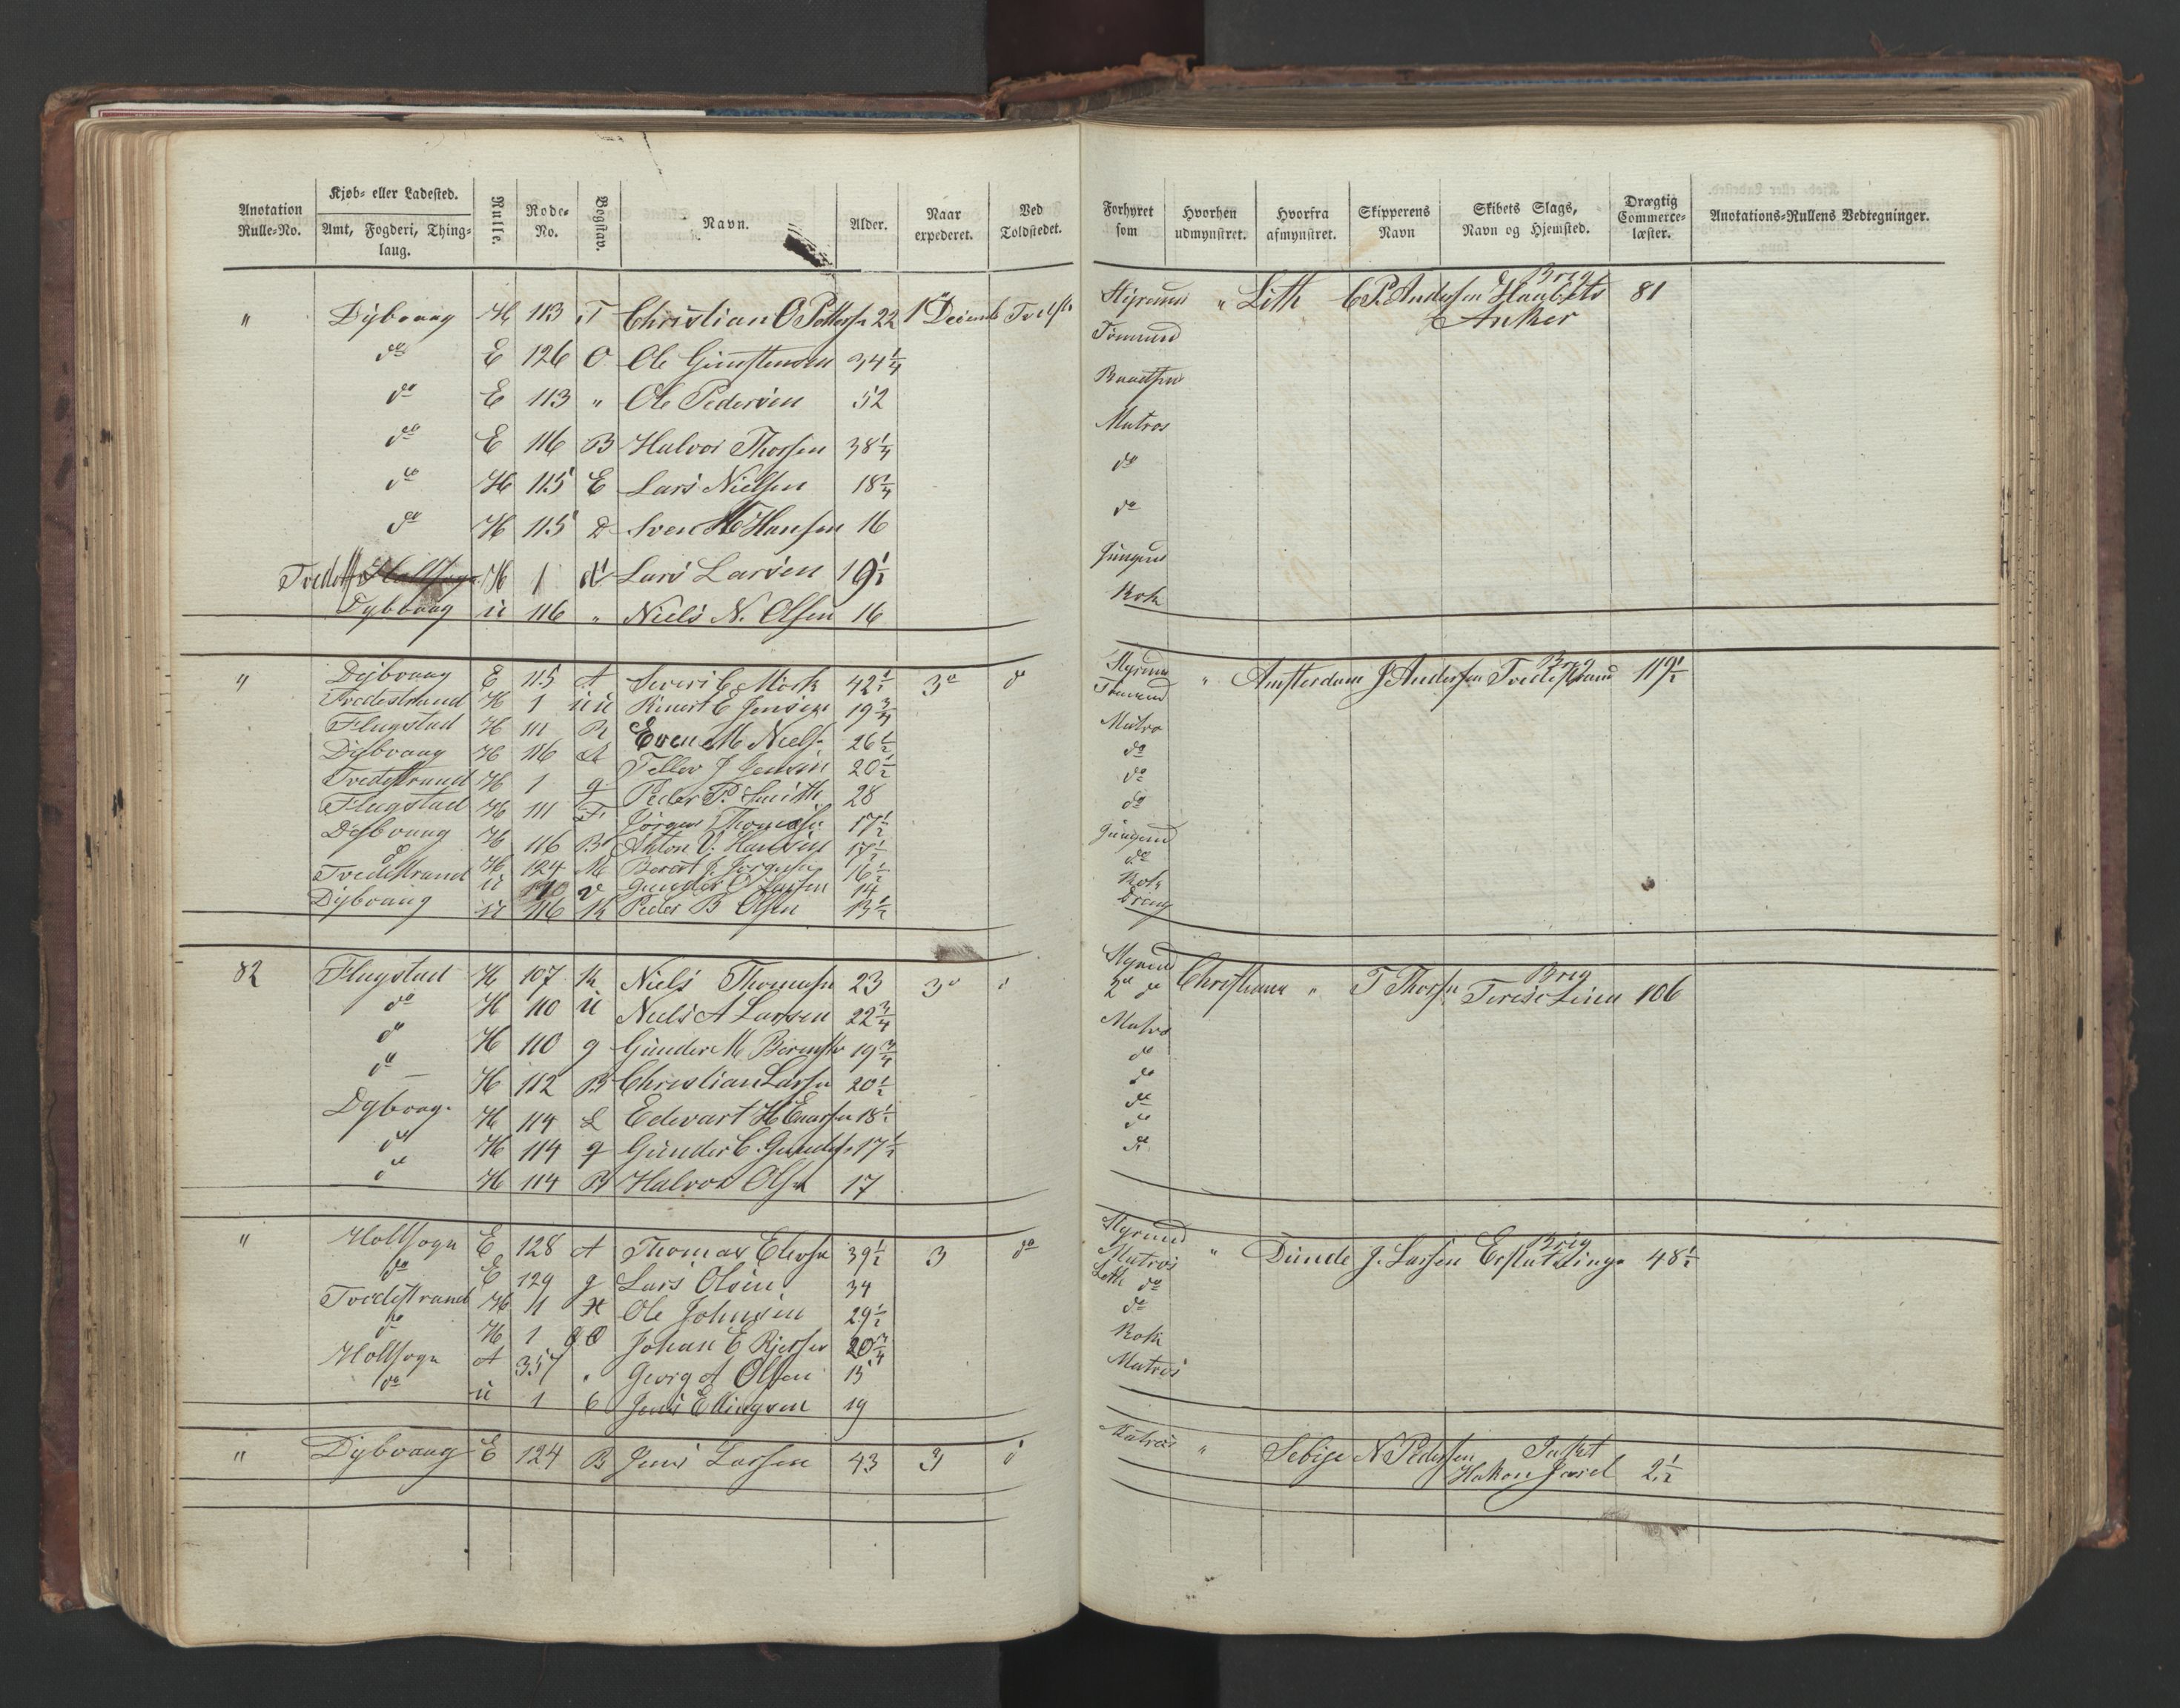 Anotation Rulle-No. | Kjøb- eller Ladested. Amt, Fogderi, Thinglaug. | Rulle. | Rode-No. | Bogstav. | Navn. | Alder. | Naar expederet. | Ved Toldstedet.
" Dybvaag H 113 T Christian O 22 1
do E 126 O Ole 34 1/4
do E 113 " Ole Pedersen 52
do E 116 B Halvor Thorsen 38 1/4
do H 115 E Lars Nielsen 18 1/4
do H 115 D Sven Hansen 16
H 1 Lars Larsen 19 1/2
Dybvaag ü 116 " Niels N. Olsen 16
" Dybvaag E 115 A 42 1/2 3 do
Tvedestrand H 1 üü E Jensen 19 3/4
Flugstad H 111 R Even M Niels. 26 1/2
Dybvaag H 116 A J Jensen 20 1/2
Tvedestrand H 1 g Peder P. Smith 28
Flugstad H 111 F Jörgen 17 1/2
Dybvaag H 116 B Anton Hansen 17 1/2
do H 124 M J 16 1/2
Tvedestrand ü v Gunder O 14
Dybvaag ü 116 K Peder B Olsen 13 1/2
82 Flugstad H 107 K Niels Thomesen 23 3 do
do H 110 ü Niels A Larsen 22 3/4
do H 110 g Günder M 19 3/4
do H 112 B Christian Larsen 20 1/2
Dybvag. H 114 L Edvart H 18 1/2
do H 114 g Günder C. 17 1/2
do H 114 B Halvor Olsen 17
" Holtsogn E 128 A Thomas 39 1/2 3 do
do E 129 g Lars Olsen 34
Tvedestrand H Ole Johnsen 29 1/2
do H 1 Johan E 20 3/4
Holtsogn A 357 " Georg A Olsen 15
do ü 1 C Jens Ellingsen 19
" Dybvaag E 124 B Jens Larsen 43 3 do
Forhyret som | Hvorhen udmynstret. | Hvorfra afmynstret. | Skipperens Navn | Skibets Slags, Navn og Hjemsted. | Drægtig Commerce-læster. | Anotations-Rullens Vedtegninger.
Styrmd " Leth C P. Andersen Brig Haabets 81
Tömmmd Anker
Baadsm
Matros
do
do
Jungmd
Kok
Styrmd " Amsterdam J Andersen Brig Tvedestrand 119 1/2
Tömmmd
Matro
do
do
do
Jüngmd
do
Kok
Dreng
Styrmd Christiania " T Thorsen Brig 106
2de do
Matro
do
do
do
do
do
Styrmd " Dünde J. Larsen Brig Erstatling 48 1/2
Matros
Leth do
do
Kok
Matros
Matros " N Pedersen
Hakon Jarl 2 1/2